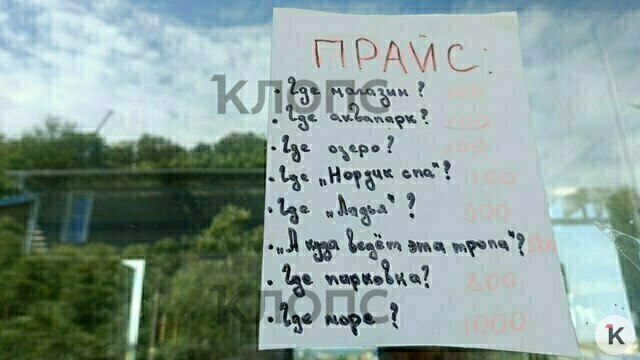 ПРАЙС:
• Где магазин?
• Где аквапарк?
• Где озеро?
• Где „Нордик спа"? 1100
• Где „Ладья"? 500
• „А куда ведёт эта тропа"?
• Где парковка? 800
• Где море? 1000
КЛОПС
КЛОПС